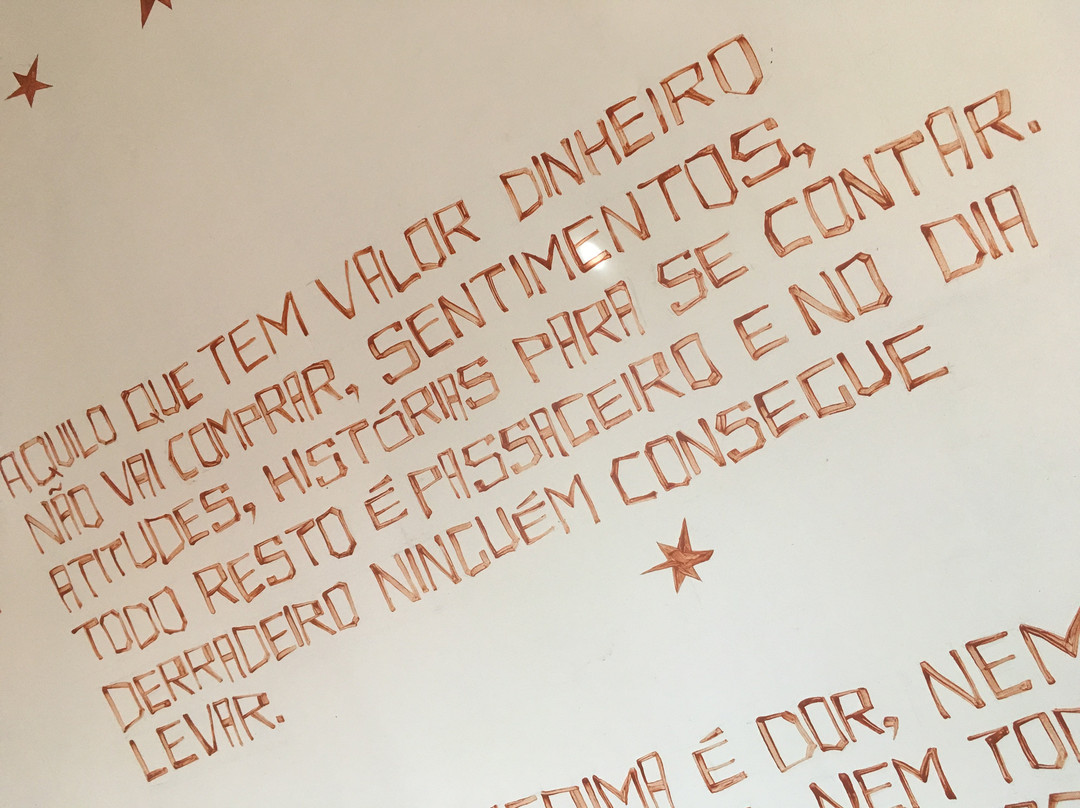 AQUILO QUE TEM VALOR DINHEIRO
NÃO VAI COMPRAR, SENTIMENTOS,
ATITUDES, HISTÓRIAS PARA SE CONTAR.
TODO RESTO É PASSAGEIRO E NO DIA
DERRADEIRO NINGUÉM CONSEGUE
LEVAR.
É DOR, NEM
NEM